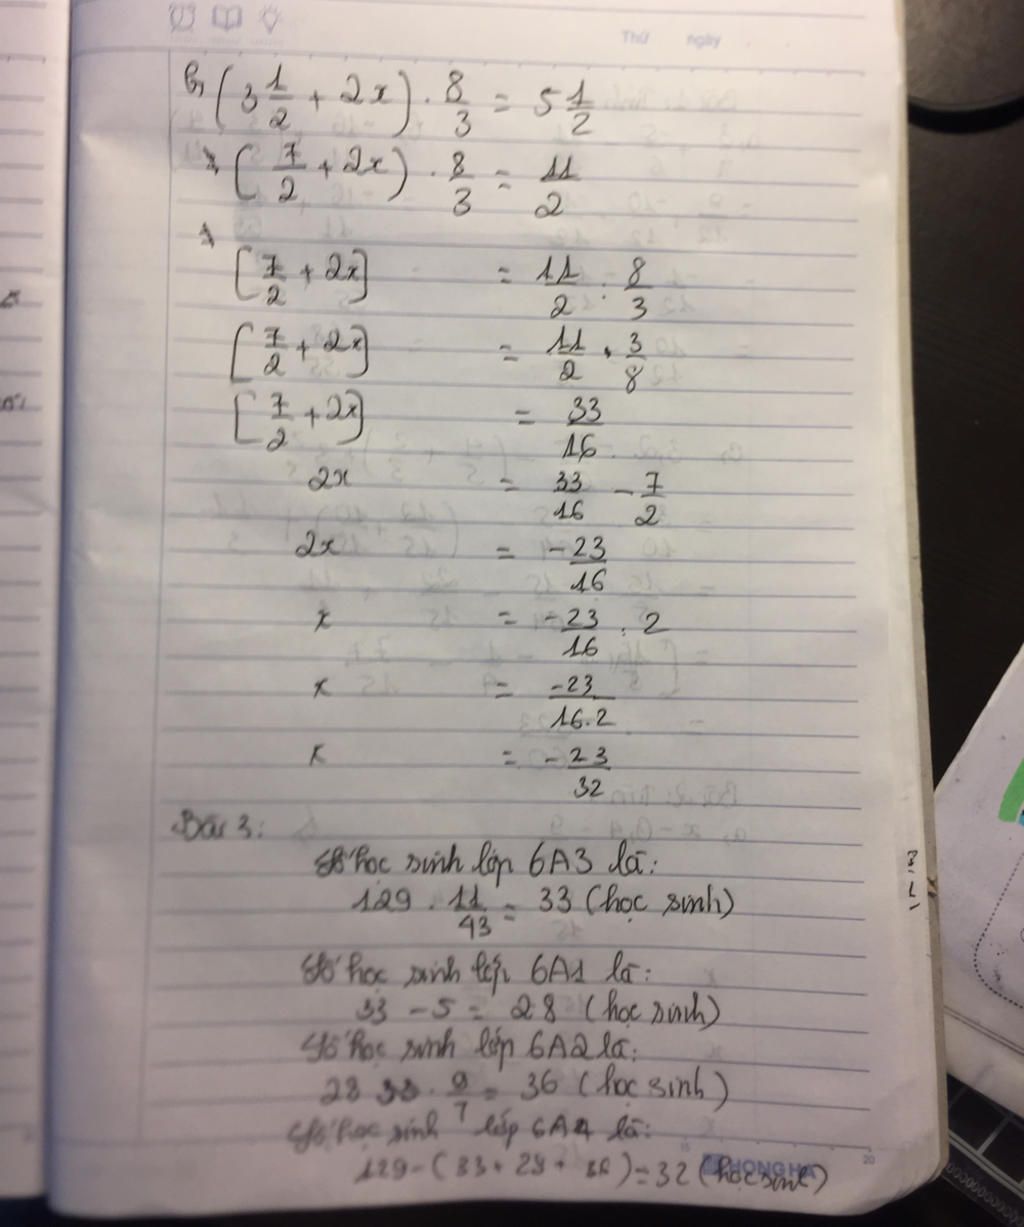 Thứ ngày
b, (3 1/2 + 2x) . 8/3 = 5 1/2
(7/2 + 2x) . 8/3 = 11/2
[7/2 + 2x] = 11/2 : 8/3
[7/2 + 2x] = 11/2 . 3/8
[7/2 + 2x] = 33/16
2x = 33/16 - 7/2
2x = -23/16
x = -23/16 : 2
x = -23/16.2
x = -23/32
Bài 3:
Số học sinh lớp 6A3 là:
129 . 11/43 = 33 (học sinh)
Số học sinh lớp 6A1 là:
33 - 5 = 28 (học sinh)
Số học sinh lớp 6A2 là:
28 . 9/7 = 36 (học sinh)
Số học sinh lớp 6A4 là:
129 - (33 + 28 + 36) = 32 (học sinh)
HONG HA
20